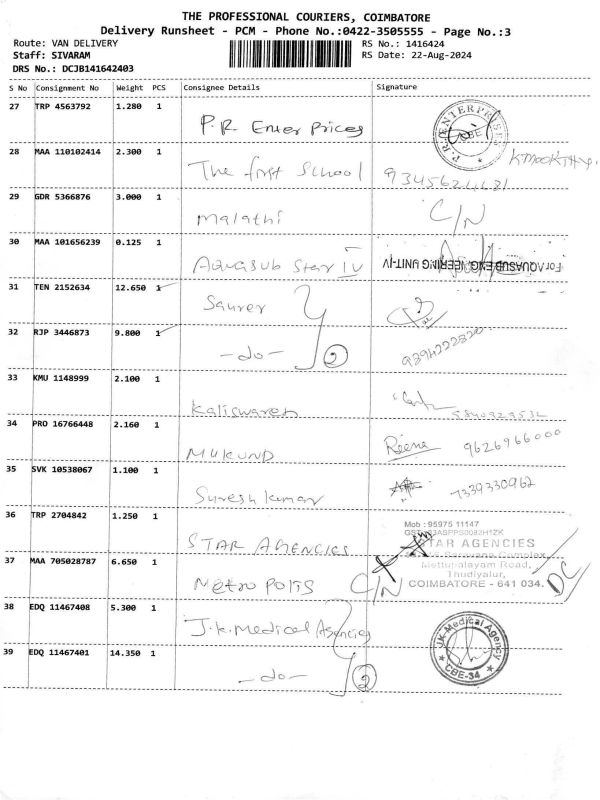 THE PROFESSIONAL COURIERS, COIMBATORE
Delivery Runsheet - PCM - Phone No.:0422-3505555 - Page No.:3
Route: VAN DELIVERY
RS No.: 1416424
Staff: SIVARAM
RS Date: 22-Aug-2024
DRS No.: DCJB141642403
S No Consignment No Weight PCS Consignee Details Signature
27 TRP 4563792 1.280 1 P.R. Enter Prices
P.R. ENTERPRISES CBE
28 MAA 110102414 2.300 1 The first School
29 GDR 5366876 3.000 1 Malathi C/N
30 MAA 101656239 0.125 1 Aquasub Star IV
For AQUASUB ENGINEERING UNIT-IV
31 TEN 2152634 12.650 1 Saurer
32 RJP 3446873 9.800 1 -do- 2
33 KMU 1148999 2.100 1 Kaliswaren
34 PRO 16766448 2.160 1 MUKUND Reena 9626966000
35 SVK 10538067 1.100 1 Suresh kumar 7339330962
36 TRP 2704842 1.250 1 STAR AGENCIES
Mob : 95975 11147
STAR AGENCIES
Mettupalayam Road,
Thudiyalur,
COIMBATORE - 641 034.
37 MAA 705028787 6.650 1 Metro Polis C/N DC
38 EDQ 11467408 5.300 1 J.k. Medical Agencies
JK-Medical Agency CBE-34
39 EDQ 11467401 14.350 1 -do- 2